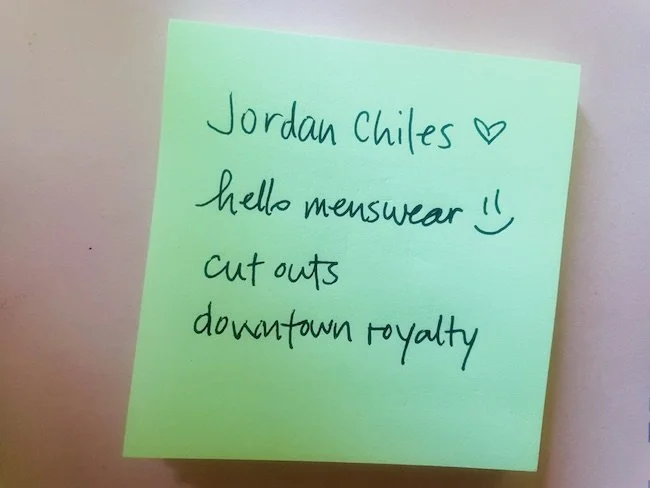 Jordan Chiles ♡
hello menswear :)
cut outs
downtown royalty